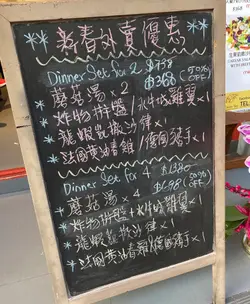 新春外賣優惠
Dinner Set for 2 $738
$368 (50% OFF)
蘑菇湯 × 2
炸物拼盤/水牛城雞翼 × 1
龍蝦凱撒沙律 × 1
法國黄油春雞/德國豬手 × 1
Dinner Set for 4 $1380
$698 (50% OFF)
蘑菇湯 × 4
炸物拼盤+水牛城雞翼 × 1
龍蝦凱撒沙律 × 1
法國黄油春雞/德國豬手 × 1